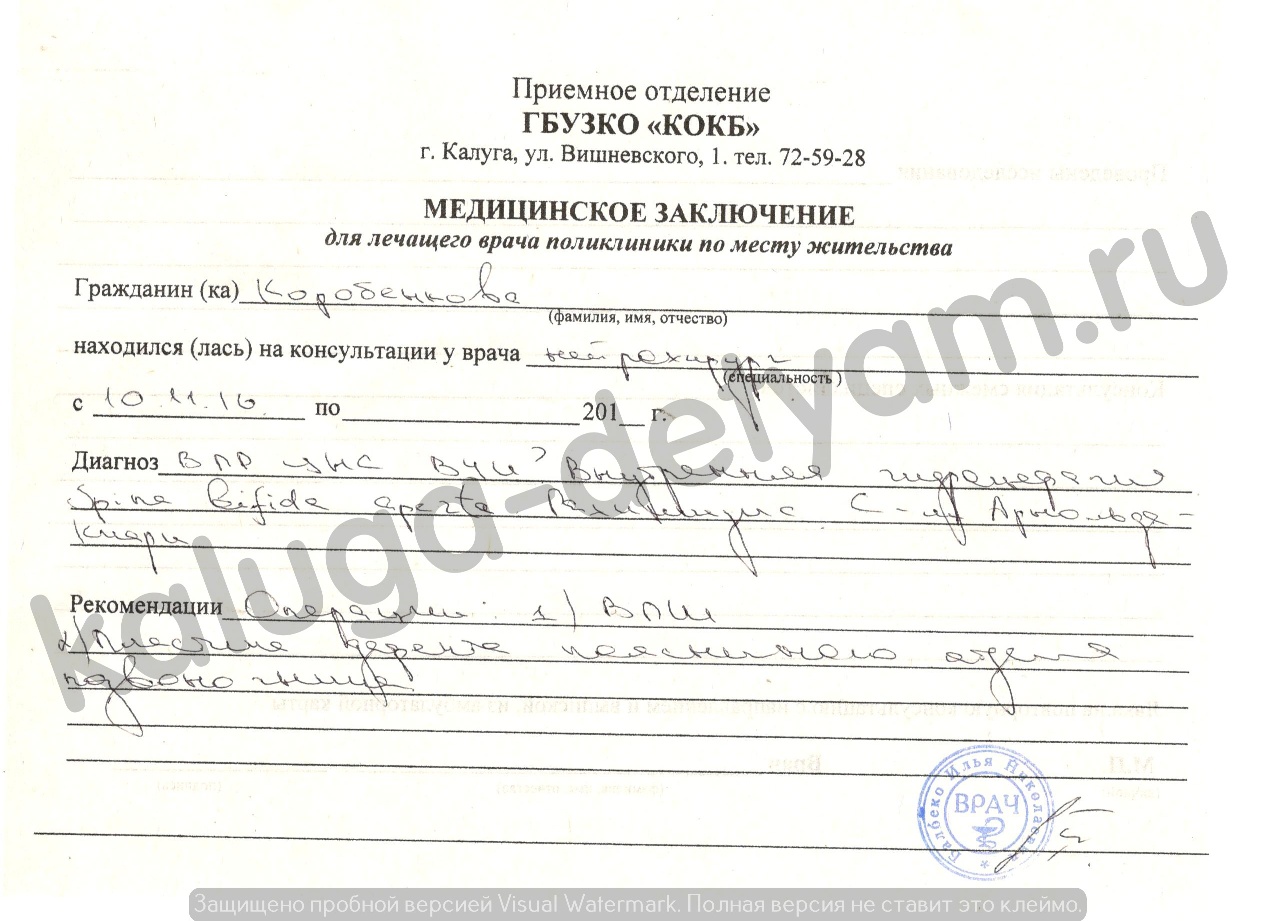 Приемное отделение
ГБУЗКО «КОКБ»
г. Калуга, ул. Вишневского, 1. тел. 72-59-28
МЕДИЦИНСКОЕ ЗАКЛЮЧЕНИЕ
для лечащего врача поликлиники по месту жительства
Гражданин (ка) Коробенкова
(фамилия, имя, отчество)
находился (лась) на консультации у врача нейрохирург
(специальность)
с 10.11.16 по 201 г.
Диагноз ВПР ЦНС ВУИ? Внутренняя гидроцефалия
Spina bifida aperta Рахишизис С-м Арнольда-
Киари
Рекомендации Операции: 1) ВПШ
2) Пластика дефекта поясничного отдела
позвоночника
Балбеко Илья Николаевич
ВРАЧ
kaluga-detyam.ru
Защищено пробной версией Visual Watermark. Полная версия не ставит это клеймо.